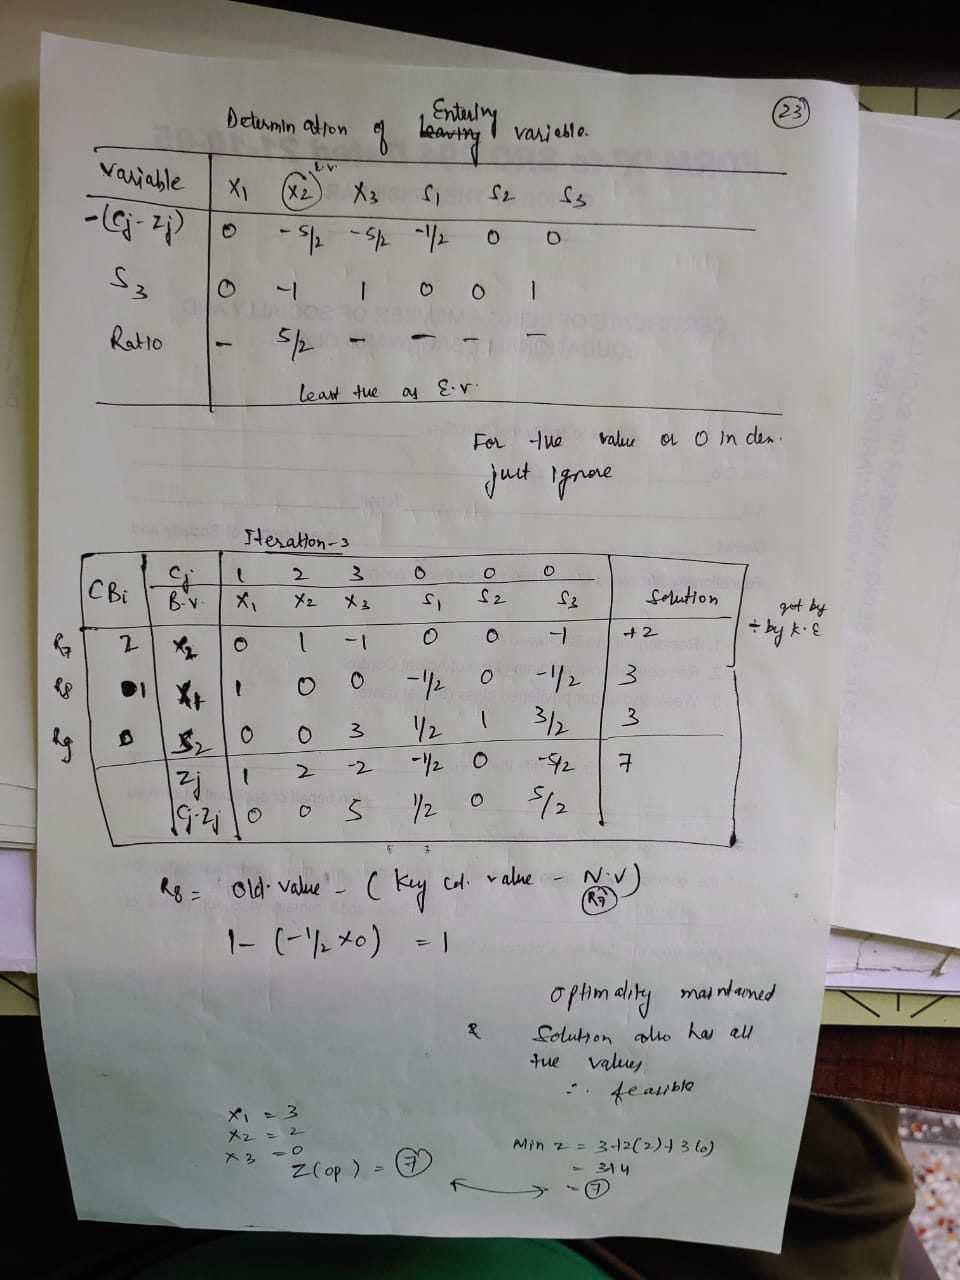 23
Determination of Entering leaving variable.
Variable X1 X2 E.V X3 S1 S2 S3
-(Cj-Zj) 0 -5/2 -5/2 -1/2 0 0
S3 0 -1 1 0 0 1
Ratio - 5/2 - - - -
Least +ve as E.V.
For +ve value or 0 in den.
just ignore
Iteration-3
CBi Cj 1 2 3 0 0 0 Solution
B.V. X1 X2 X3 S1 S2 S3
R7 2 X2 0 1 -1 0 0 -1 +2 ÷ by K.E got by
R8 1 X1 1 0 0 -1/2 0 -1/2 3
R9 0 S2 0 0 3 1/2 1 3/2 3
Zj 1 2 -2 -1/2 0 -5/2 7
Cj-Zj 0 0 5 1/2 0 5/2
R8 = Old. value - ( Key Col. value - N.V) R7
1- (-1/2 x0) = 1
Optimality maintained
& Solution also has all
+ve values
∴ feasible
X1 = 3
X2 = 2
X3 = 0
Z(op) = 7
Min z = 3+2(2)+3(0)
= 3+4
= 7